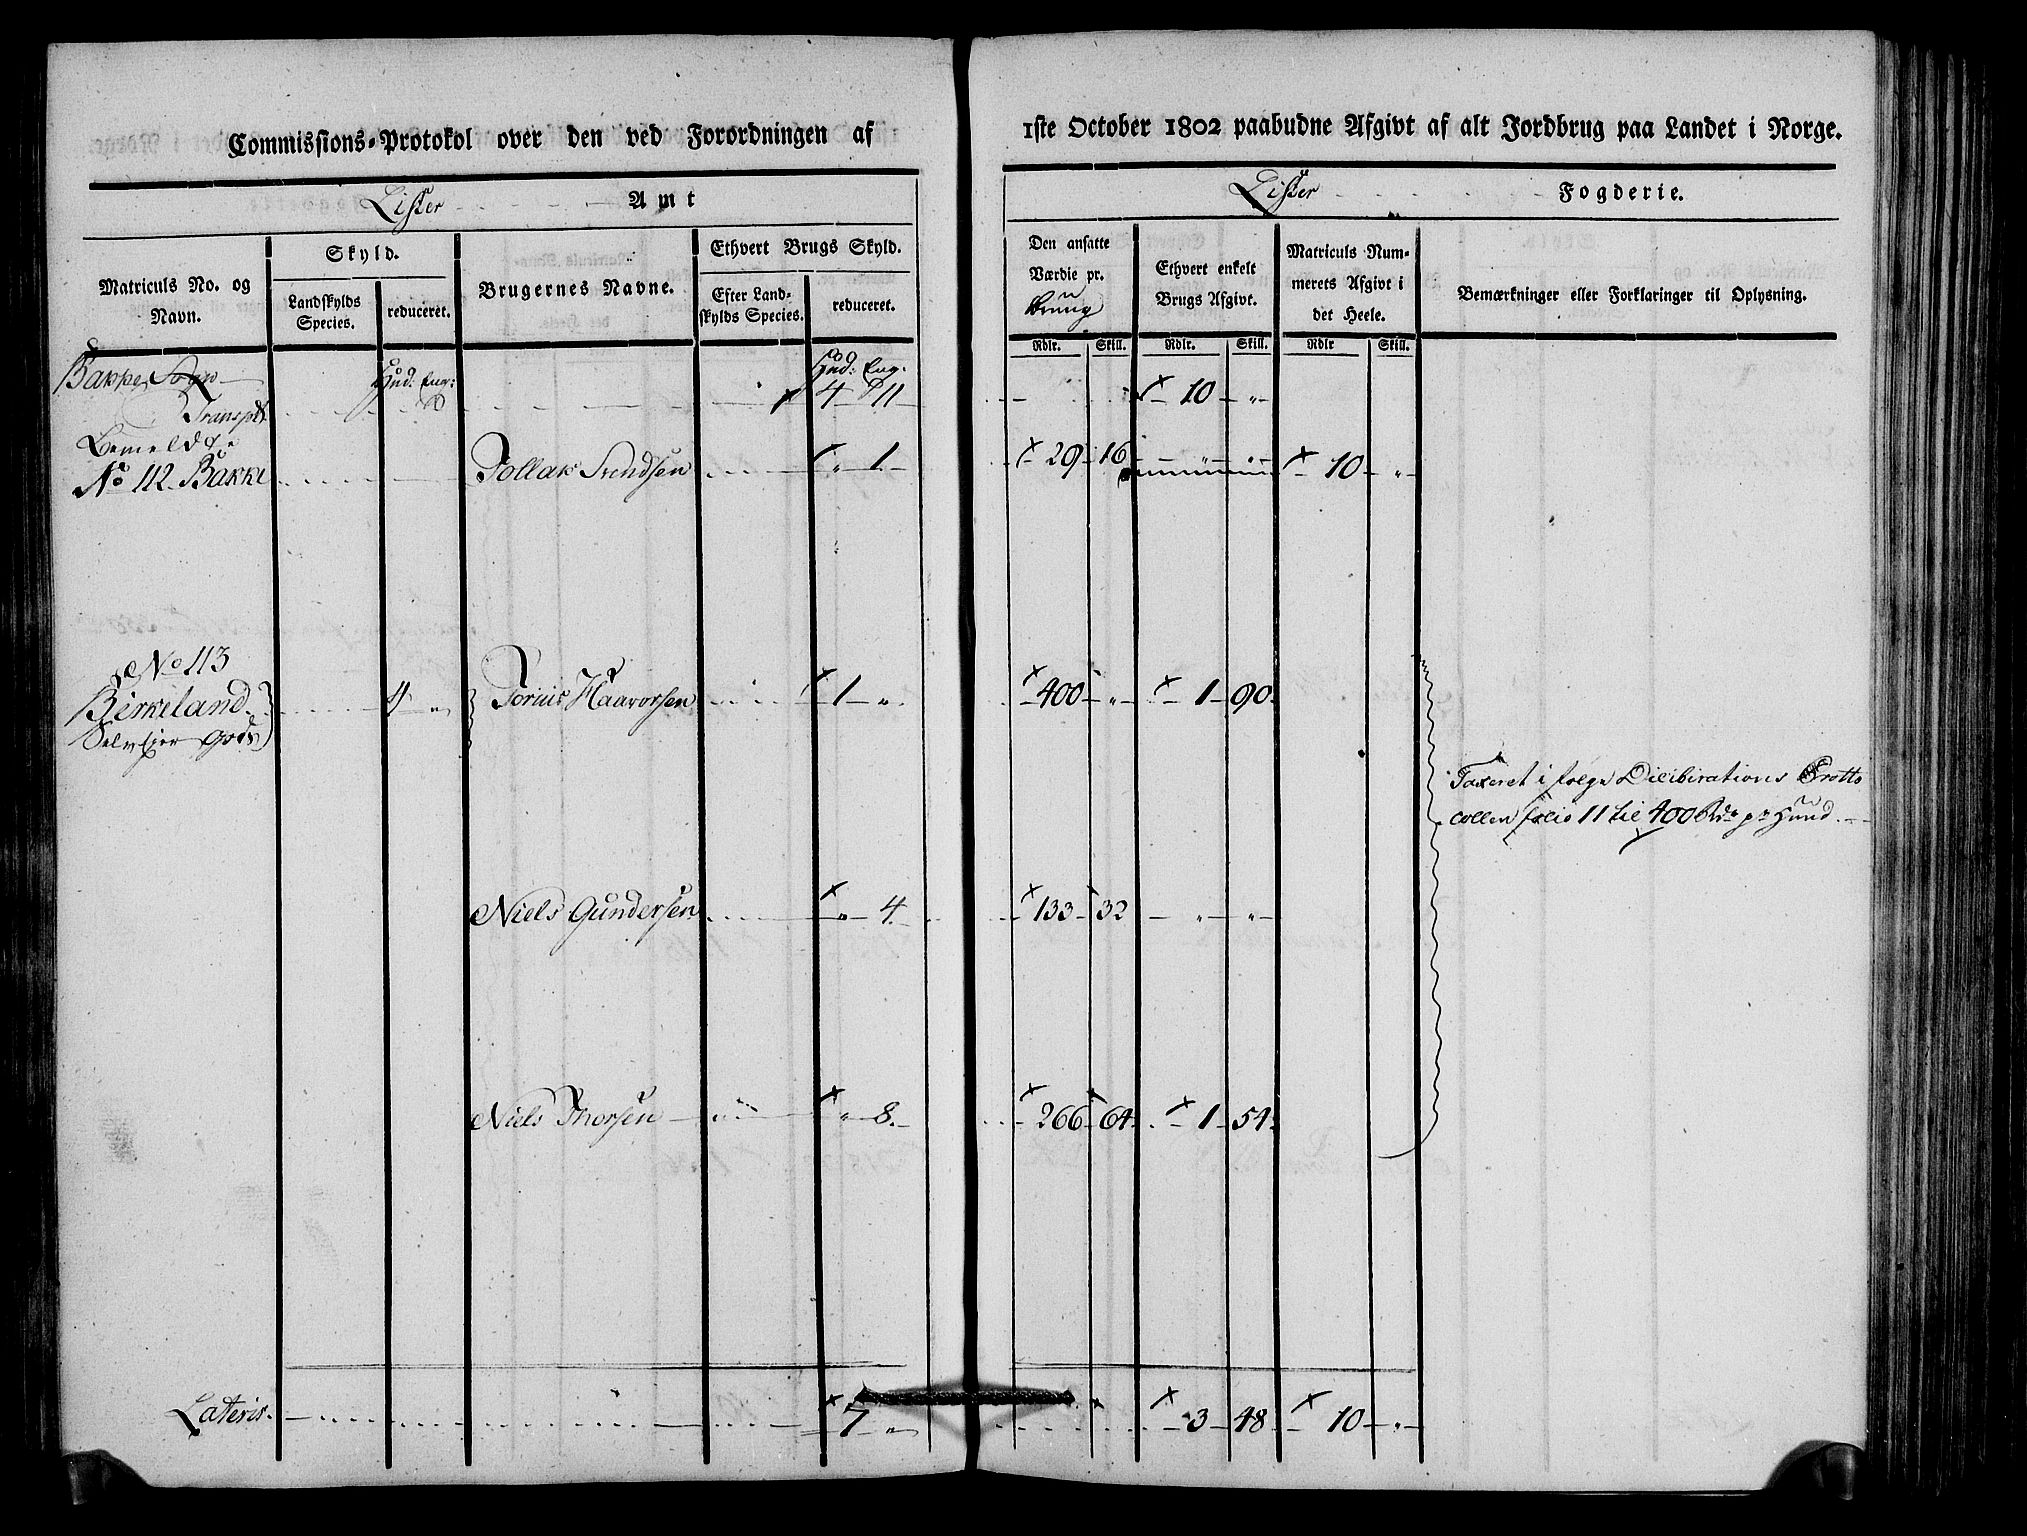 Commissions-Protokol over den ved Forordningen af
1ste October 1802 paabudne Afgivt af alt Jordbrug paa Landet i Norge.
Lister Amt
Lister Fogderie.
Matriculs No. og Navn.
Skyld.
Landskylds Species.
reduceret.
Brugernes Navne.
Ethvert Brugs Skyld.
Efter Landskylds Species.
reduceret.
Den ansatte Værdie pr. Brug
Ethvert enkelt Brugs Afgivt.
Matriculs Nummerets Afgivt i det Heele.
Bemærkninger eller Forklaringer til Oplysning.
Rdlr. Skill. Rdlr. Skill. Rdlr Skill.
Bakke Sogn Hud: Eng: Hud: Eng:
Transpt 4 11 10 "
Bemeldte
No 112 Bakke Tollak Svendsen " 1 29 16 " " 10 "
No 113
Birkeland 4 " Torius Haavorsen 1 " 400 " 1 90
Selveier Gods
Taxeret i følge Deliberations Protto
collen folio 11 til 400 Rdr pr Hund.
Niels Gundersen " 4 133 32 " "
Niels Thorsen " 8 266 64 1 54
Lateris 7 " 3 48 10 "